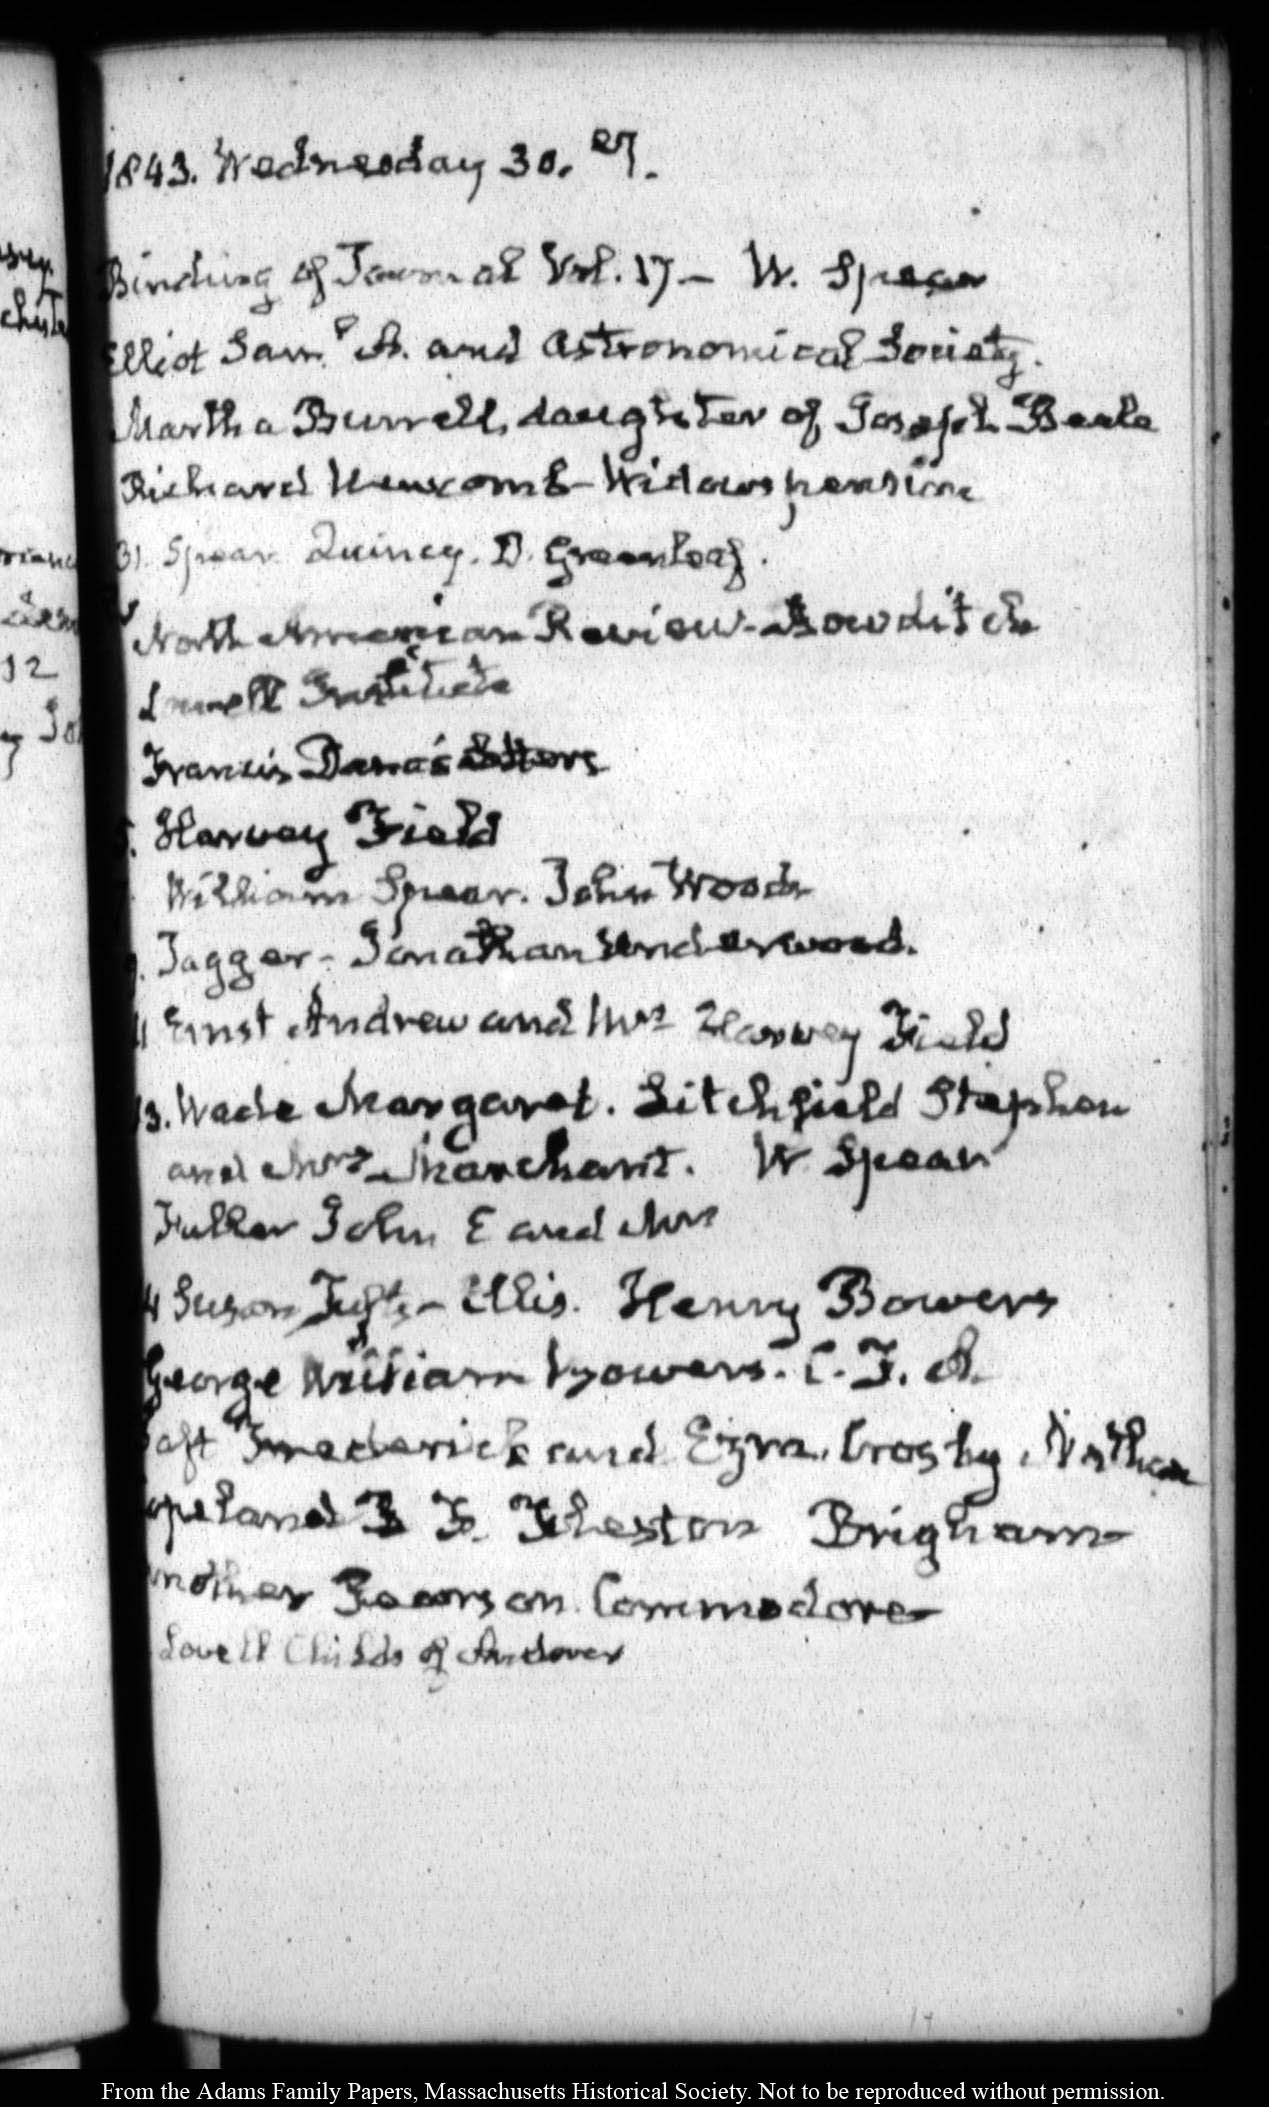 1843. Wednesday 30.
Binding of Journal Vol. 17 – W. Spear
Elliot Sam.l A. and Astronomical Society.
Martha Burrell, daughter of Joseph Beale
Richard Newcomb – Widows pension
31. Spear Quincy. D. Greenleaf.
North American Review – Bowditch
Lowell Institute
Francis Dana's Letters
Harvey Field
William Spear. John Woods
Jagger – Jonathan Underwood.
Ernst Andrew and Mrs Harvey Field
13. Wade Margaret. Litchfield Stephen
and Mrs Marchant. W. Spear
Fuller John E and Mrs
Susan Tufts – Ellis. Henry Bowers
George William Bowers. C. F. A.
Frederick and Ezra. Crosby Nathan
F. Brigham
another Pearson Commodore
Lovell Childs of Andover
From the Adams Family Papers, Massachusetts Historical Society. Not to be reproduced without permission.